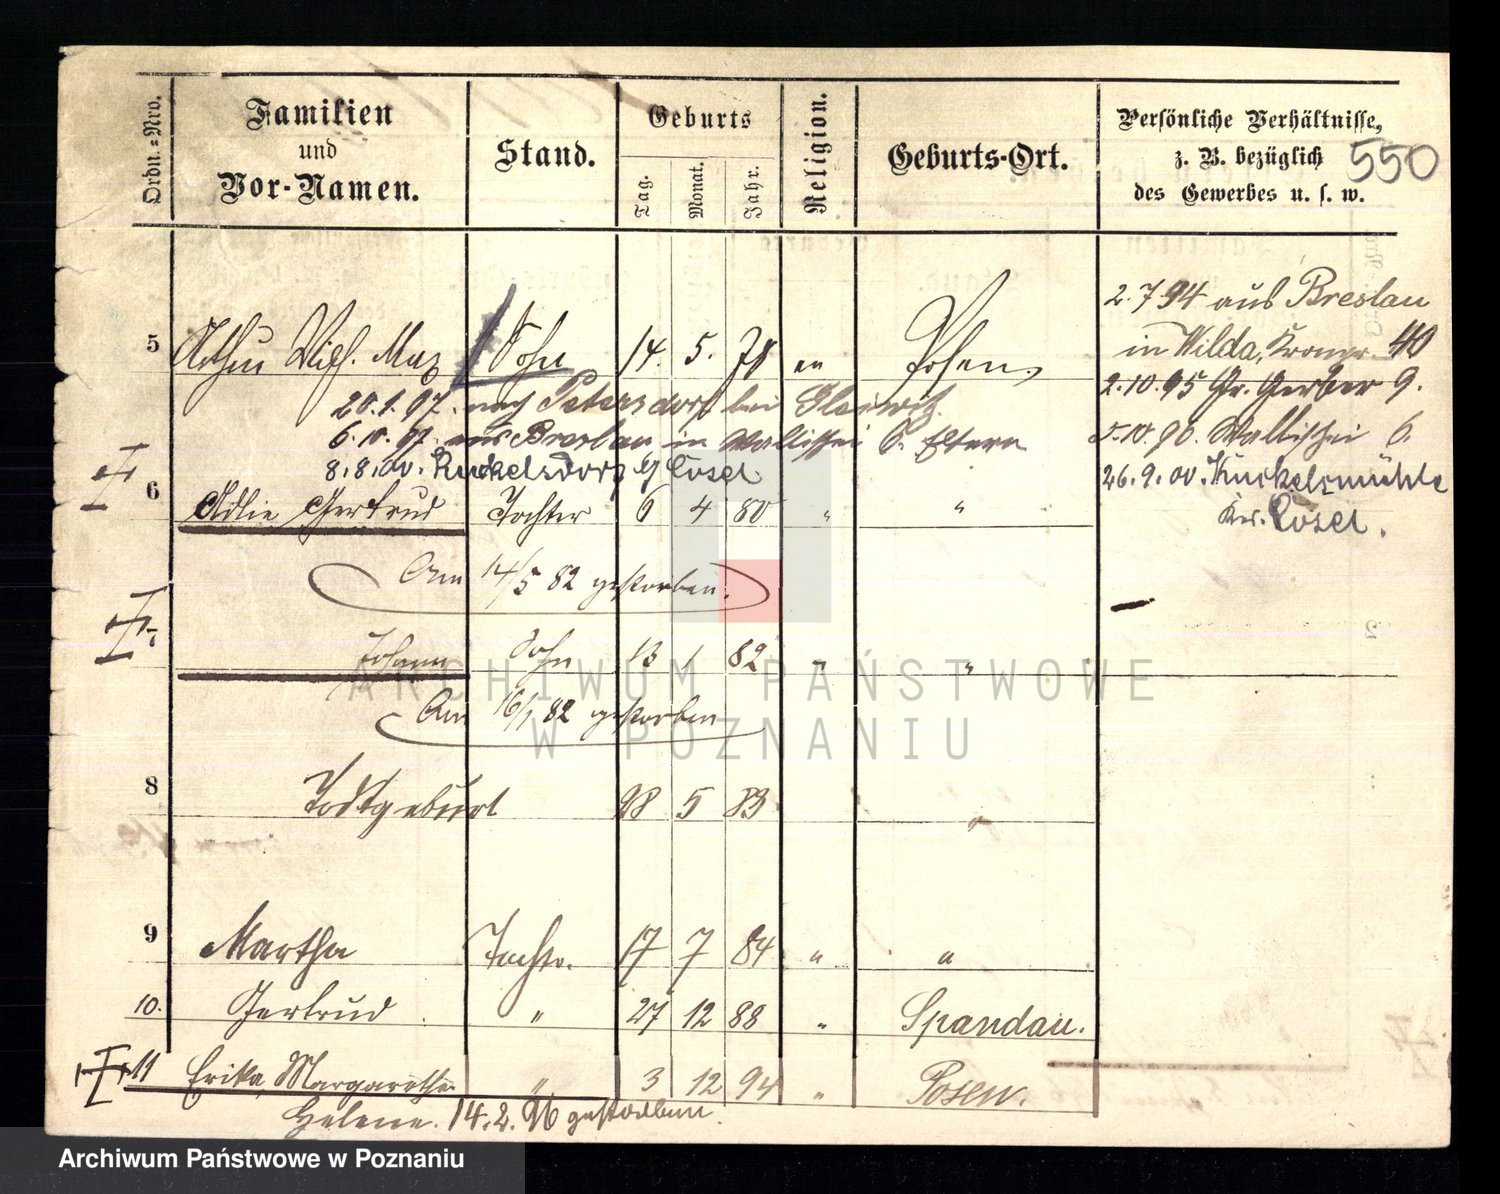 Ordn.=Nro.
Familien
und
Vor-Namen.
Stand.
Geburts
Tag.
Monat.
Jahr.
Religion.
Geburts-Ort.
Persönliche Verhältnisse,
z. B. bezüglich
des Gewerbes u. s. w.
550
5 Arthur Wilh. Max Sohn 14. 5. 78 ev Posen,
2. 7 94 aus Breslau
in Wilda, Kronpr. 40
2. 10. 95 Gr. Gerber 9.
5. 10. 96. Wallischei 6.
26. 9. 00. Kuckelsmühle
Kr. Cosel.
20. 1. 97. nach Petersdorf bei Gleiwitz.
6. 10. 97. aus Breslau in Wallischei 6. Eltern
8. 8. 00. Kuckelsdorf Cosel.
6 Gertrud Tochter 6 4 80 " "
Am 14/5 82 gestorben.
7 Johann Sohn 13 1 82 " "
Am 16/1 82 gestorben
8 Todtgeburt 28 5 83 "
9 Martha Tochtr. 17 7 84 " "
10. Gertrud " 27 12 88 " Spandau.
11 Erika, Margarethe " 3 12 94 " Posen.
Helene. 14. 2. 96 gestorben.
ARCHIWUM PAŃSTWOWE
W POZNANIU
Archiwum Państwowe w Poznaniu